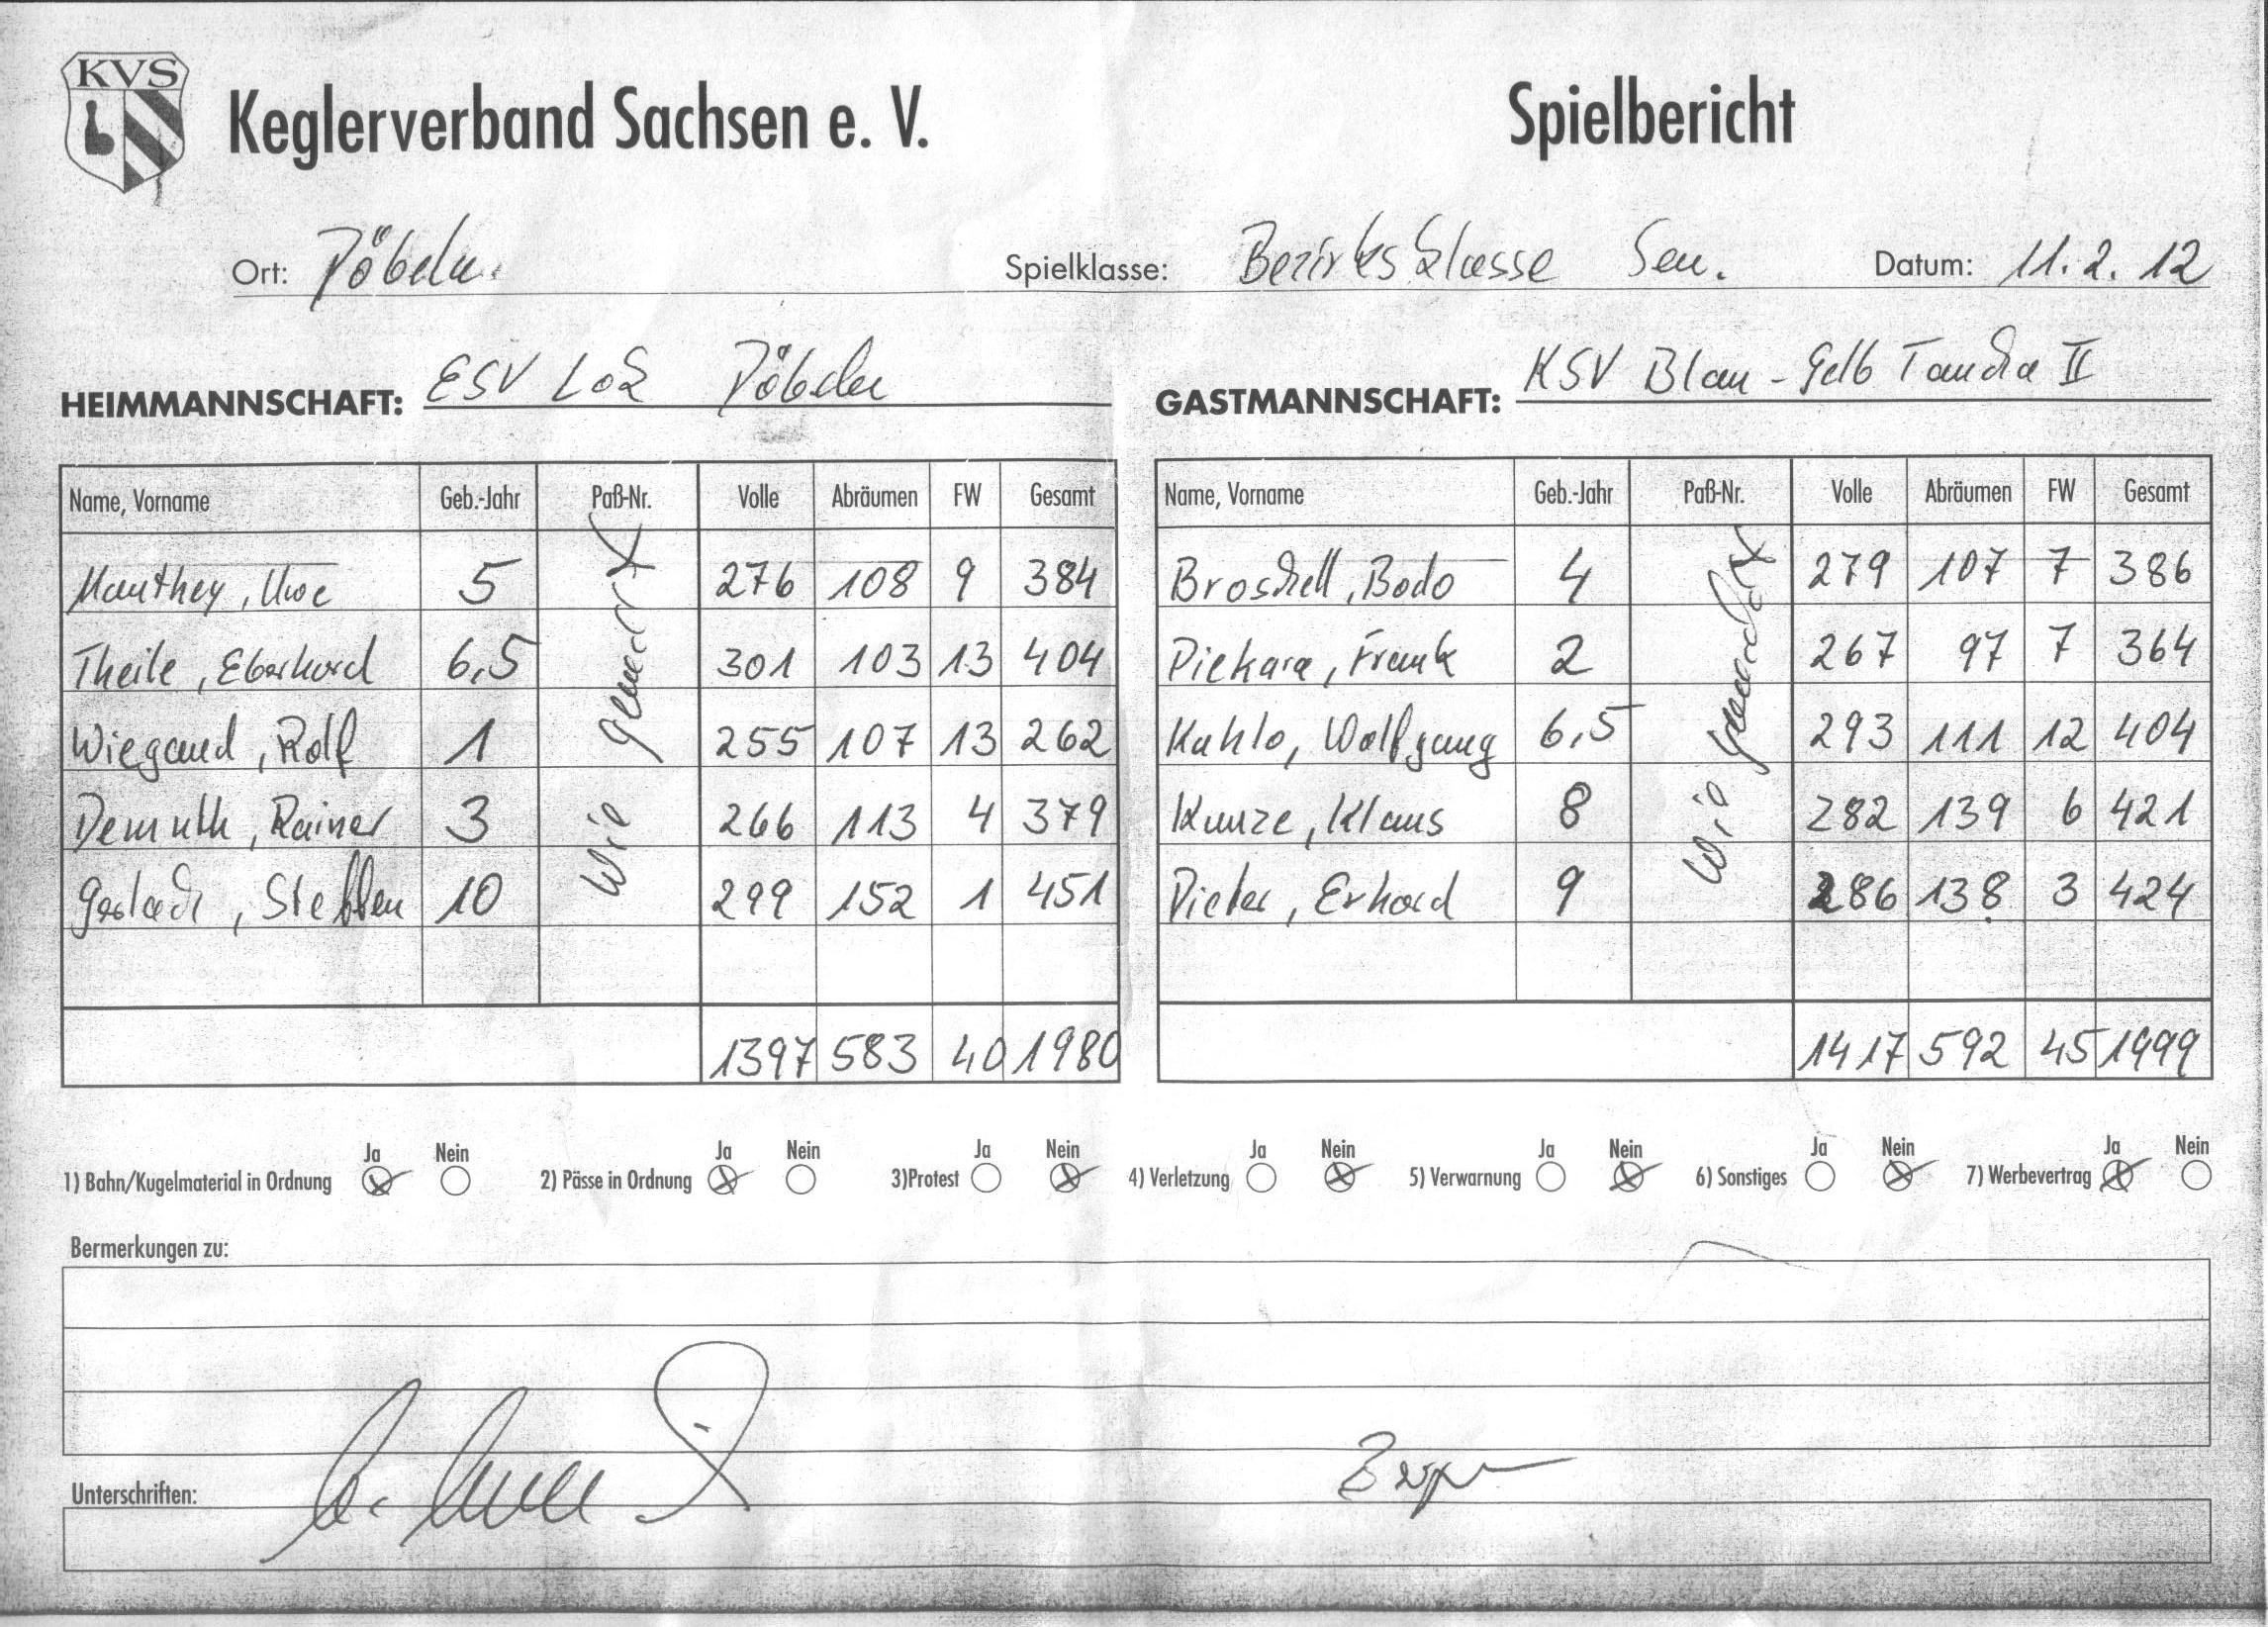 KVS
Keglerverband Sachsen e. V. Spielbericht
Ort: Döbeln Spielklasse: Bezirksklasse Sen. Datum: 11.2.12
HEIMMANNSCHAFT: ESV Lok Döbeln GASTMANNSCHAFT: KSV Blau-Gelb Taucha II
Name, Vorname Geb.-Jahr Paß-Nr. Volle Abräumen FW Gesamt Name, Vorname Geb.-Jahr Paß-Nr. Volle Abräumen FW Gesamt
Manthey, Uwe 5 276 108 9 384 Broschell, Bodo 4 279 107 7 386
Theile, Eberhard 6,5 301 103 13 404 Piekara, Frank 2 267 97 7 364
Wiegand, Rolf 1 255 107 13 262 Kahlo, Wolfgang 6,5 293 111 12 404
Demuth, Rainer 3 266 113 4 379 Kunze, Klaus 8 282 139 6 421
Gerlach, Steffen 10 299 152 1 451 Pieter, Erhard 9 286 138 3 424
wie gemerkt
wie
1397 583 40 1980 1417 592 45 1999
Ja Nein Ja Nein Ja Nein Ja Nein Ja Nein Ja Nein Ja Nein
1) Bahn/Kugelmaterial in Ordnung 2) Pässe in Ordnung 3)Protest 4) Verletzung 5) Verwarnung 6) Sonstiges 7) Werbevertrag
Bermerkungen zu:
Unterschriften: